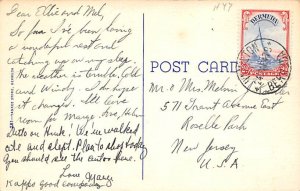 Dear Ottie and Mel,
So far I've been having
a wonderful rest and
catching up on my sleep.
The weather is terrible, Cold
and Windy. I do hope
it changes. I'll leave
room for Marge
on back! We've walked
ate and slept. Plan to shop today
You should see the autos here.
Love
Kappo good company
N47
BERMUDA
POST CARD
Mr. & Mrs Melvin
511 Grant Avenue East
Roselle Park
New Jersey
U.S.A